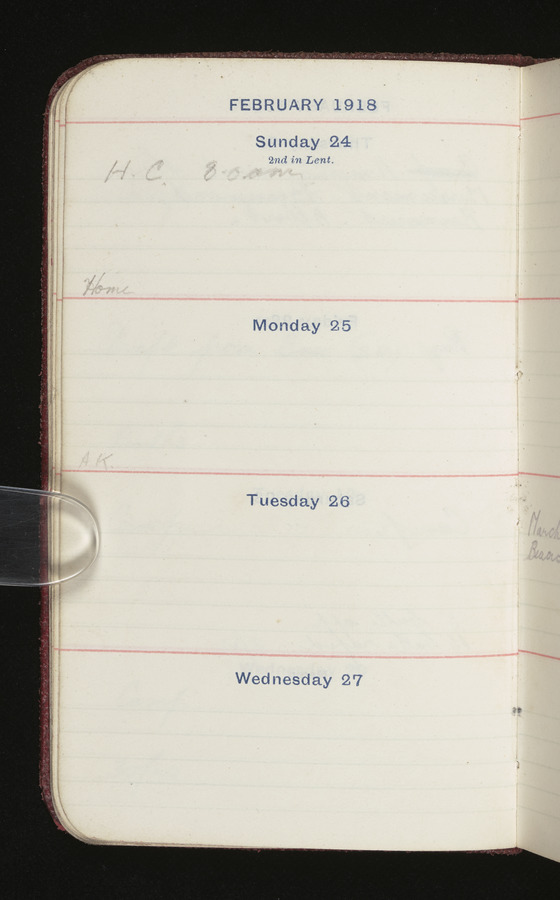 FEBRUARY 1918
Sunday 24
2nd in Lent.
H. C. 8-0 am
Home
Monday 25
A.K.
Tuesday 26
Wednesday 27